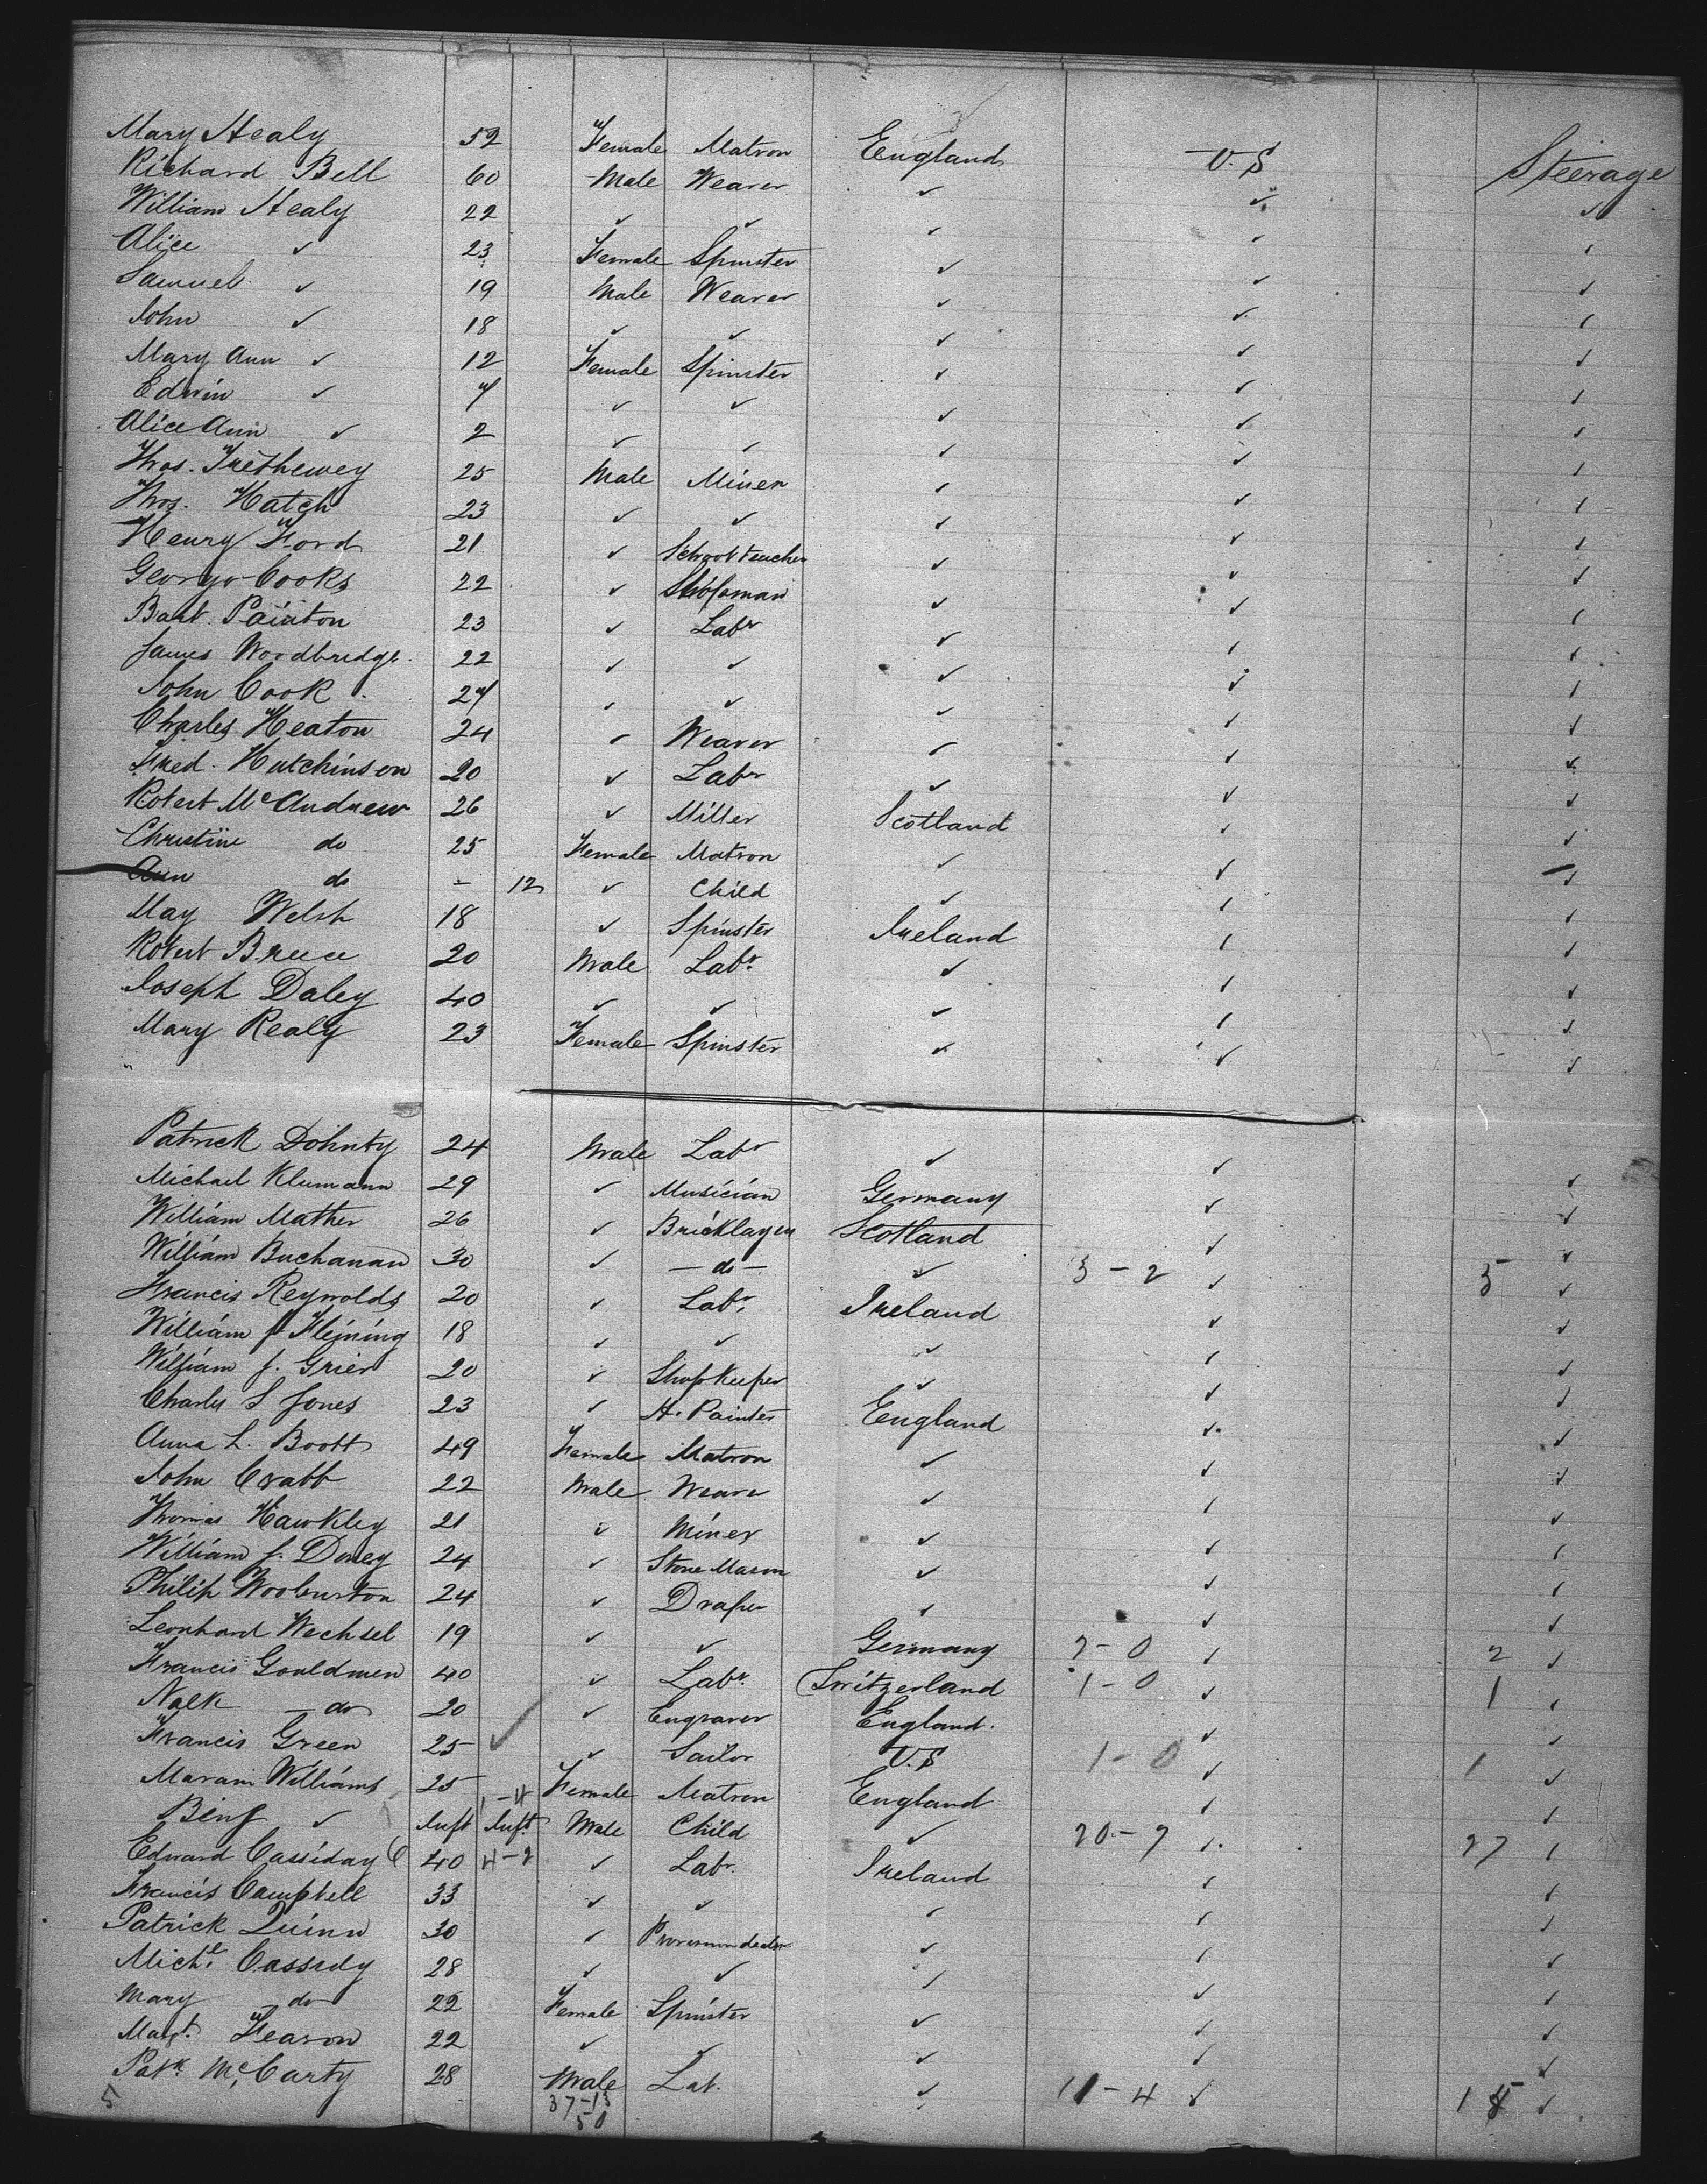 Mary Healy 52 Female Matron England U.S Steerage
Richard Bell 60 Male Weaver ✓ ✓ ✓
William Healy 22 ✓ ✓ ✓ ✓ ✓
Alice ✓ 23 Female Spinster ✓ ✓ ✓
Samuel ✓ 19 Male Weaver ✓ ✓ ✓
John ✓ 18 ✓ ✓ ✓ ✓ ✓
Mary Ann ✓ 12 Female Spinster ✓ ✓ ✓
Edwin ✓ 7 ✓ ✓ ✓ ✓ ✓
Alice Ann ✓ 2 ✓ ✓ ✓ ✓ ✓
Thos. Trethewey 25 Male Miner ✓ ✓ ✓
Thos. Hatch 23 ✓ ✓ ✓ ✓ ✓
Henry Ford 21 ✓ School teacher ✓ ✓ ✓
George Cooks 22 ✓ ✓ ✓ ✓
Bart. Painton 23 ✓ Labr ✓ ✓ ✓
James Woodbridge 22 ✓ ✓ ✓ ✓ ✓
John Cook 27 ✓ ✓ ✓ ✓ ✓
Charles Heaton 24 ✓ Weaver ✓ ✓ ✓
Fred. Hutchinson 20 ✓ Labr ✓ ✓ ✓
Robert McAndrew 26 ✓ Miller Scotland ✓ ✓
Christine do 25 Female Matron ✓ ✓ ✓
Ann do - 12 ✓ Child ✓ ✓ ✓
May Welsh 18 ✓ Spinster Ireland ✓ ✓
Robert Breece 20 Male Labr. ✓ ✓ ✓
Joseph Daley 40 ✓ ✓ ✓ ✓ ✓
Mary Realy 23 Female Spinster ✓ ✓ ✓
Patrick Dohnty 24 Male Labr ✓ ✓ ✓
Michael Klumann 29 ✓ Musician Germany ✓ ✓
William Mather 26 ✓ Bricklayer Scotland ✓ ✓
William Buchanan 30 ✓ - do - ✓ 3 - 2 ✓ 5 ✓
Francis Reynolds 20 ✓ Labr. Ireland ✓ ✓
William Fleming 18 ✓ ✓ ✓ ✓ ✓
William J. Grier 20 ✓ Shopkeeper ✓ ✓ ✓
Charles S Jones 23 ✓ H. Painter England ✓ ✓
Anna L. Boott 49 Female Matron ✓ ✓ ✓
John Crabb 22 Male Weaver ✓ ✓ ✓
Thomas Hawkley 21 ✓ Miner ✓ ✓ ✓
William J. Doney 24 ✓ Stone Mason ✓ ✓ ✓
Philip Wooburton 24 ✓ Draper ✓ ✓ ✓
Leonhard Wechsel 19 ✓ ✓ Germany 2 - 0 ✓ 2 ✓
Francis Gouldmen 40 ✓ Labr. Switzerland 1 - 0 ✓ 1 ✓
Nalk - do 20 ✓ Engraver England. ✓ ✓
Francis Green 25 ✓ ✓ Sailor U.S 1 - 0 ✓ 1 ✓
Maram Williams 25 1 - 4 Female Matron England ✓ ✓
Benj ✓ Inft Inft Male Child ✓ 20 - 7 ✓ 27 ✓
Edward Cassiday 40 4 - 2 ✓ Labr. Ireland ✓ ✓
Francis Campbell 33 ✓ ✓ ✓ ✓ ✓
Patrick Quinn 30 ✓ Provision dealer ✓ ✓ ✓
Michl. Cassidy 28 ✓ ✓ ✓ ✓ ✓
Mary do 22 Female Spinster ✓ ✓ ✓
Margt. Fearon 22 ✓ ✓ ✓ ✓ ✓
Patk. McCarty 28 Male Lab. ✓ 11 - 4 ✓ 15 ✓
5 37 - 13
50